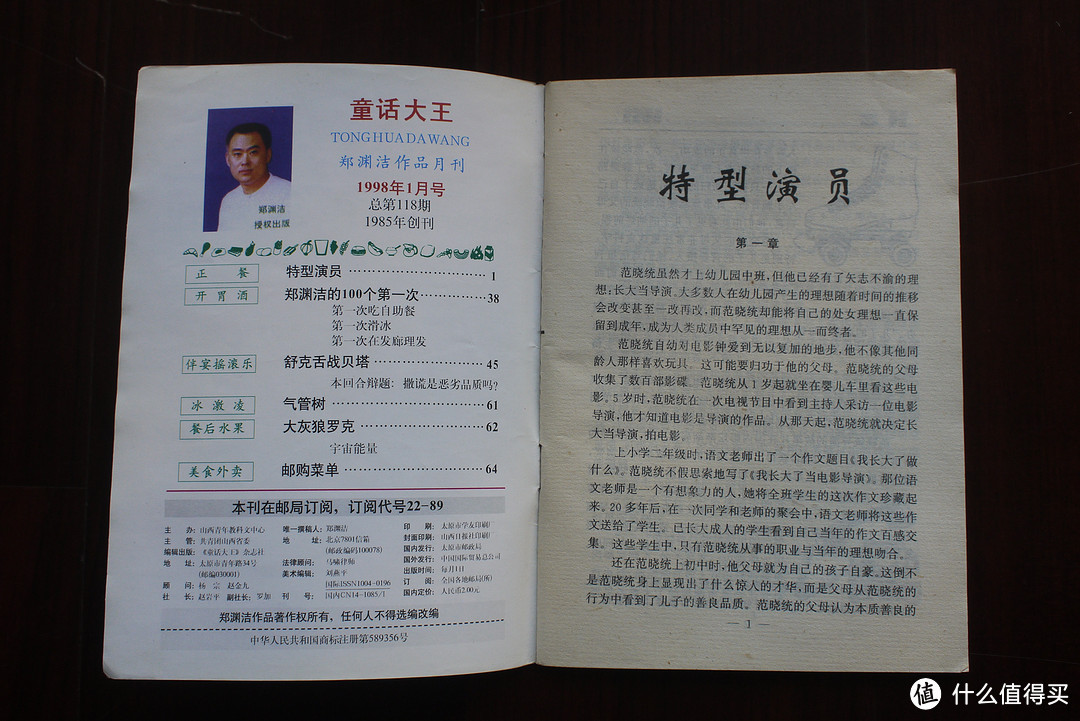 童话大王
TONGHUADAWANG
郑渊洁作品月刊
1998年1月号
总第118期
1985年创刊
郑渊洁
授权出版
正 餐 特型演员 1
开胃酒 郑渊洁的100个第一次 38
第一次吃自助餐
第一次滑冰
第一次在发廊理发
伴宴摇滚乐 舒克舌战贝塔 45
本回合辩题：撒谎是恶劣品质吗?
冰激凌 气管树 61
餐后水果 大灰狼罗克 62
宇宙能量
美食外卖 邮购菜单 64
本刊在邮局订阅，订阅代号22-89
主 办：山西青年教科文中心
主 管：共青团山西省委
编辑出版：《童话大王》杂志社
地 址：太原市青年路34号
(邮编030001)
顾 问：杨 宗 赵金九
社 长：赵岩平 副社长：罗加
唯一撰稿人：郑渊洁
地 址：北京7801信箱
(邮政编码100078)
法律顾问：马啸律师
美术编辑：刘燕平
国际ISSN1004-0196
刊 号：国内CN14-1085/I
印 刷：太原市学友印刷厂
封面印刷：山西日报社印刷厂
国内发行：太原市邮政局
国外发行：中国国际贸易总公司
出版时间：每月1日
订 阅：全国各地邮局(所)
国内定价：人民币2.00元
郑渊洁作品著作权所有，任何人不得选编改编
中华人民共和国商标注册第589356号
特型演员
第一章
范晓统虽然才上幼儿园中班，但他已经有了矢志不渝的理
想：长大当导演。大多数人在幼儿园产生的理想随着时间的推移
会改变甚至一改再改，而范晓统却能将自己的处女理想一直保
留到成年，成为人类成员中罕见的理想从一而终者。
范晓统自幼对电影钟爱到无以复加的地步，他不像其他同
龄人那样喜欢玩具。这可能要归功于他的父母。范晓统的父母
收集了数百部影碟。范晓统从1岁起就坐在婴儿车里看这些电
影。5岁时，范晓统在一次电视节目中看到主持人采访一位电影
导演，他才知道电影是导演的作品。从那天起，范晓统就决定长
大当导演，拍电影。
上小学二年级时，语文老师出了一个作文题目《我长大了做
什么》。范晓统不假思索地写了《我长大了当电影导演》。那位语
文老师是一个有想象力的人，她将全班学生的这次作文珍藏起
来。20多年后，在一次同学和老师的聚会中，语文老师将这些作
文送给了学生。已长大成人的学生看到自己当年的作文百感交
集。这些学生中，只有范晓统从事的职业与当年的理想吻合。
还在范晓统上初中时，他父母就为自己的孩子自豪。这倒不
是范晓统身上显现出了什么惊人的才华，而是父母从范晓统的
行为中看到了儿子的善良品质。范晓统的父母认为本质善良的
— 1 —
值 什么值得买